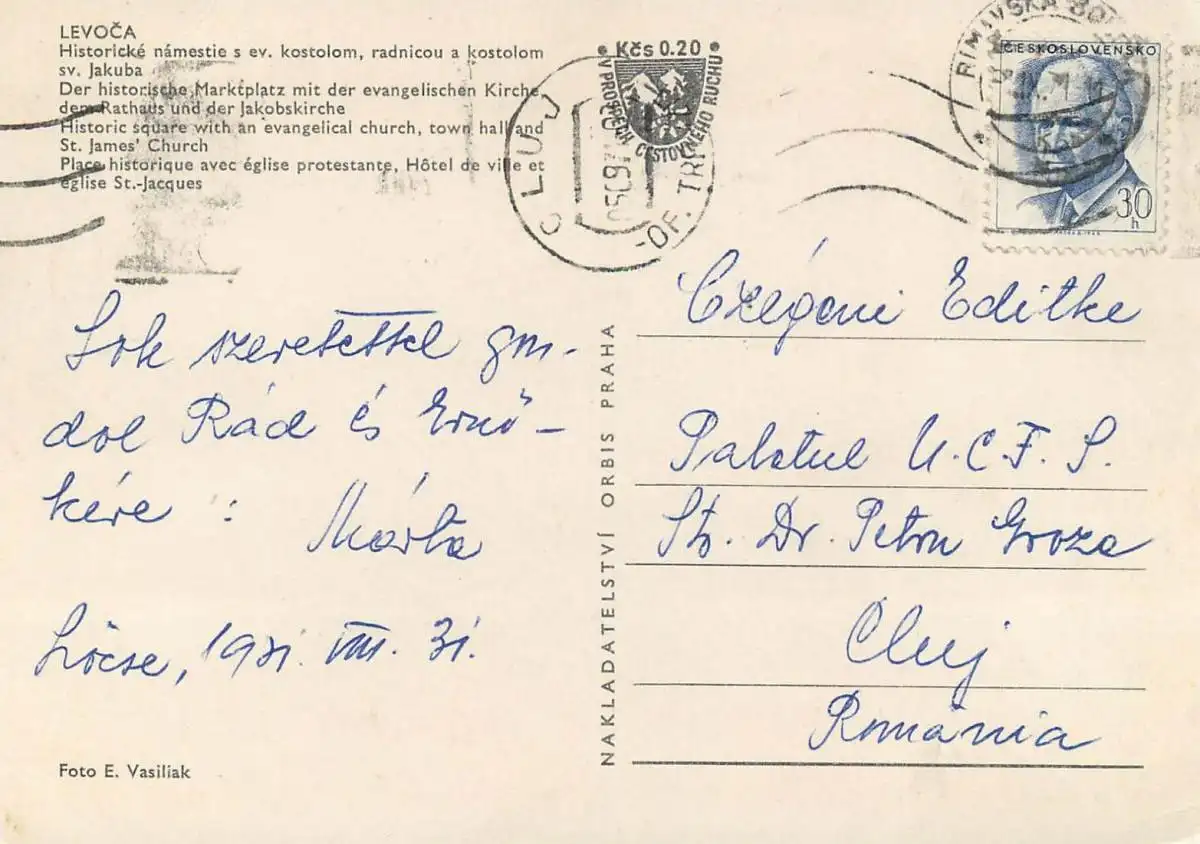 LEVOČA
Historické námestie s ev. kostolom, radnicou a kostolom
sv. Jakuba
Der historische Marktplatz mit der evangelischen Kirche,
dem Rathaus und der Jakobskirche
Historic square with an evangelical church, town hall and
St. James' Church
Place historique avec église protestante, Hôtel de ville et
église St.-Jacques
Kčs 0.20
V PROSPĚCH CESTOVNÉHO RUCHU
CLUJ
-OF. TR
RIMAVSKÁ
ČESKOSLOVENSKO
30
h
Sok szeretettel gon-
dol Rád és Ernő-
kére :
Márta
Lőcse, 1971. VIII. 31.
Foto E. Vasiliak
NAKLADATELSTVÍ ORBIS PRAHA
Czégeni Editke
Palatul U.C.F.S.
Str. Dr. Petru Groza
Cluj
România